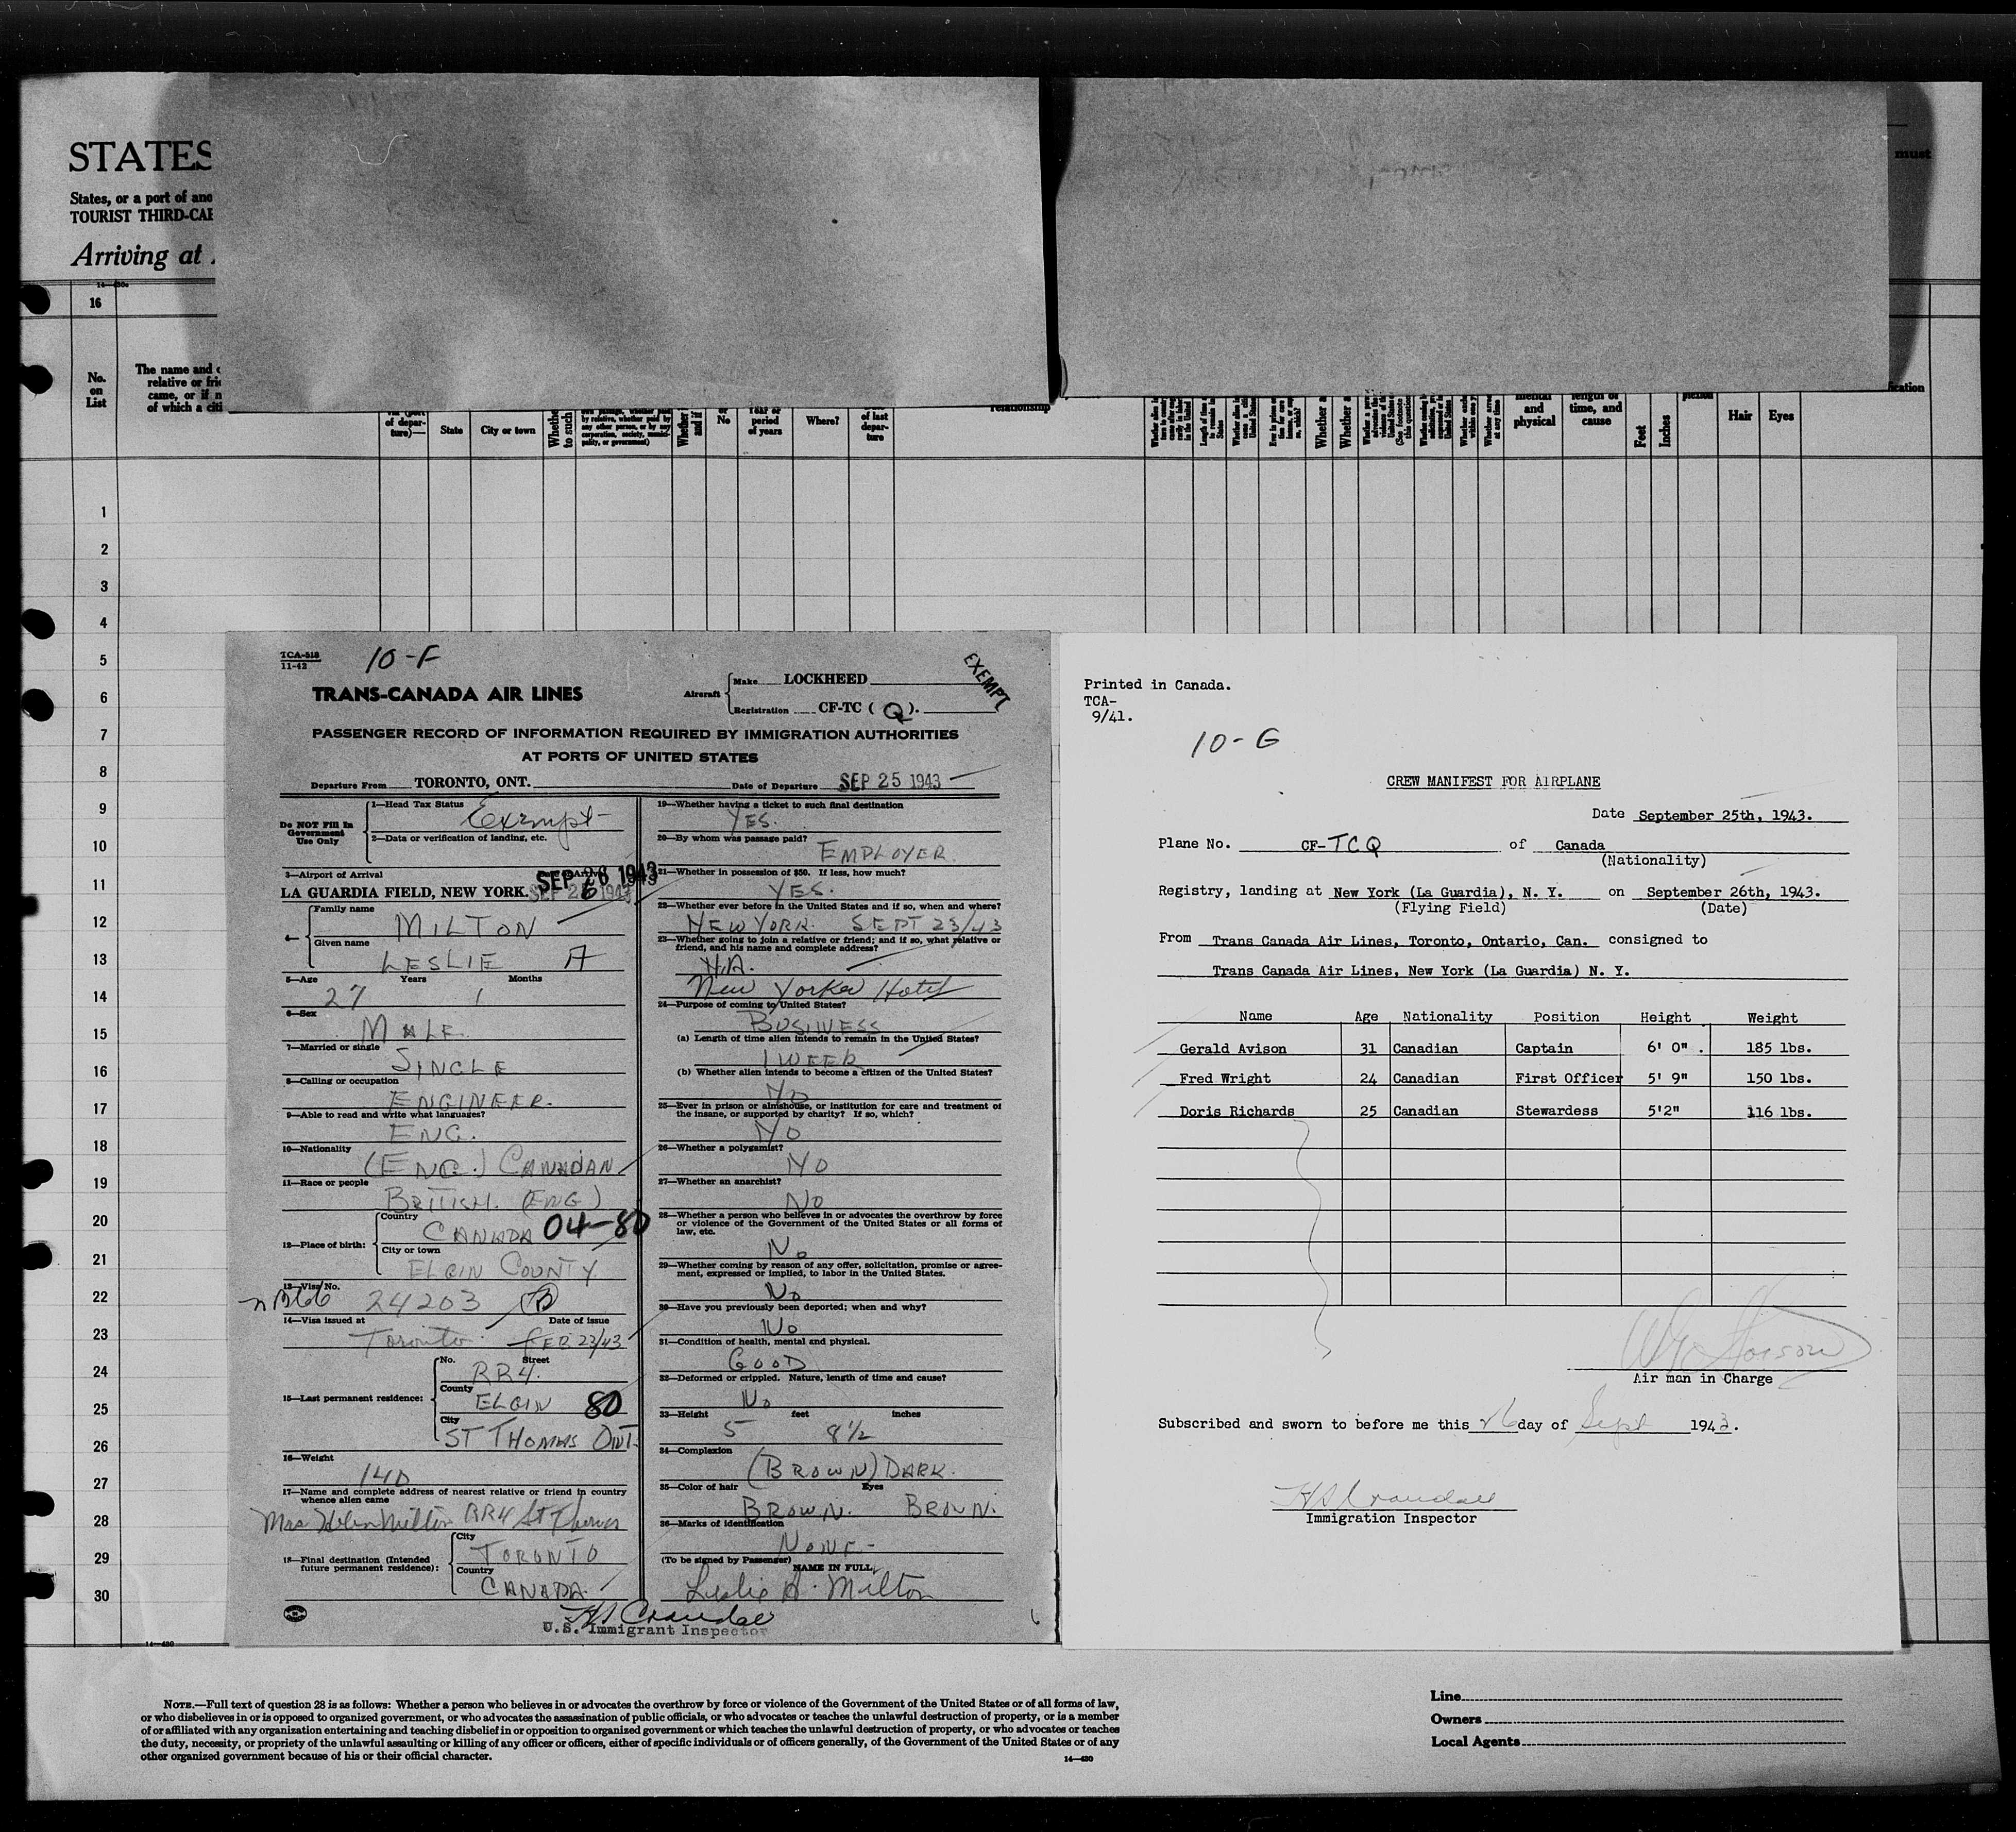 STATES
States, or a port of ano
TOURIST THIRD-CAB
Arriving at
must
14—430a
16
No. on List
The name and c
relative or frie
came, or if n
of which a citi
(port of depar-ture)—
State
City or town
Whethe to such
by relative, whether paid by any other person, or by any corporation, society, munici-pality, or government)
Whether and if
or No
Year or period of years
Where?
of last depar-ture
relationship
Whether a
Whether a
mental and physical
length of time, and cause
Feet
Inches
Hair
Eyes
fication
1
2
3
4
5
6
7
8
9
10
11
12
13
14
15
16
17
18
19
20
21
22
23
24
25
26
27
28
29
30
14—430
TCA-518
11-42
10-F
EXEMPT
TRANS-CANADA AIR LINES
Aircraft
Make LOCKHEED
Registration CF-TC ( Q ).
PASSENGER RECORD OF INFORMATION REQUIRED BY IMMIGRATION AUTHORITIES
AT PORTS OF UNITED STATES
Departure From TORONTO, ONT. Date of Departure SEP 25 1943
Do NOT Fill In Government Use Only
1—Head Tax Status
Exempt
2—Data or verification of landing, etc.
3—Airport of Arrival
SEP 26 1943
LA GUARDIA FIELD, NEW YORK. SEP 26 1943
4—
Family name
MILTON
Given name
LESLIE A
5—Age Years Months
27 1
6—Sex
MALE
7—Married or single
SINGLE
8—Calling or occupation
ENGINEER.
9—Able to read and write what languages?
ENG.
10—Nationality
(ENG.) CANADIAN
11—Race or people
BRITISH. (ENG)
12—Place of birth:
Country
CANADA 04-80
City or town
ELGIN COUNTY
13—Visa No.
24203 B
14—Visa issued at Date of issue
Toronto FEB 23/43
15—Last permanent residence:
No. Street
RR4.
County
ELGIN 80
City
ST THOMAS ONT.
16—Weight
140
17—Name and complete address of nearest relative or friend in country
whence alien came
Mrs Helen Milton RR4 St Thomas
18—Final destination (Intended future permanent residence):
City
TORONTO
Country
CANADA.
19—Whether having a ticket to such final destination
YES.
20—By whom was passage paid?
EMPLOYER.
21—Whether in possession of $50. If less, how much?
YES.
22—Whether ever before in the United States and if so, when and where?
NEW YORK. SEPT 23/43
23—Whether going to join a relative or friend; and if so, what relative or
friend, and his name and complete address?
N.A.
New Yorker Hotel
24—Purpose of coming to United States?
BUSINESS
(a) Length of time alien intends to remain in the United States?
1 WEEK
(b) Whether alien intends to become a citizen of the United States?
NO
25—Ever in prison or almshouse, or institution for care and treatment of
the insane, or supported by charity? If so, which?
NO
26—Whether a polygamist?
NO
27—Whether an anarchist?
NO
28—Whether a person who believes in or advocates the overthrow by force
or violence of the Government of the United States or all forms of
law, etc.
No
29—Whether coming by reason of any offer, solicitation, promise or agree-
ment, expressed or implied, to labor in the United States.
No
30—Have you previously been deported; when and why?
No
31—Condition of health, mental and physical.
GOOD
32—Deformed or crippled. Nature, length of time and cause?
No
33—Height feet inches
5 8½
34—Complexion
(BROWN) DARK.
35—Color of hair Eyes
BROWN. BROWN.
36—Marks of identification
NONE-
(To be signed by Passenger) NAME IN FULL
Leslie A. Milton
HS Crandall
U.S. Immigrant Inspector
Printed in Canada.
TCA-
9/41.
10-G
CREW MANIFEST FOR AIRPLANE
Date September 25th, 1943.
Plane No. CF-TCQ of Canada
(Nationality)
Registry, landing at New York (La Guardia), N. Y. on September 26th, 1943.
(Flying Field) (Date)
From Trans Canada Air Lines, Toronto, Ontario, Can. consigned to
Trans Canada Air Lines, New York (La Guardia) N. Y.
Name Age Nationality Position Height Weight
Gerald Avison 31 Canadian Captain 6' 0" . 185 lbs.
Fred Wright 24 Canadian First Officer 5' 9" 150 lbs.
Doris Richards 25 Canadian Stewardess 5'2" 116 lbs.
Air man in Charge
Subscribed and sworn to before me this 26 day of Sept 1943.
HS Crandall
Immigration Inspector
NOTE.—Full text of question 28 is as follows: Whether a person who believes in or advocates the overthrow by force or violence of the Government of the United States or of all forms of law,
or who disbelieves in or is opposed to organized government, or who advocates the assassination of public officials, or who advocates or teaches the unlawful destruction of property, or is a member
of or affiliated with any organization entertaining and teaching disbelief in or opposition to organized government or which teaches the unlawful destruction of property, or who advocates or teaches
the duty, necessity, or propriety of the unlawful assaulting or killing of any officer or officers, either of specific individuals or of officers generally, of the Government of the United States or of any
other organized government because of his or their official character.
14—430
Line
Owners
Local Agents